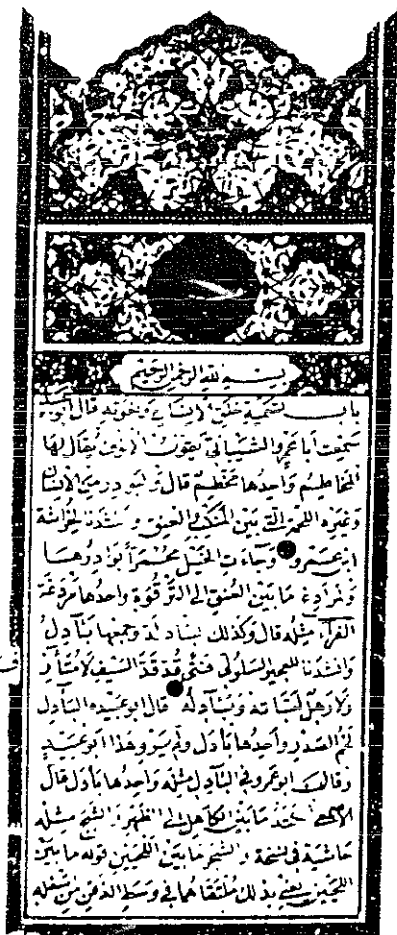 بسم الله الرحمن الرحيم
باب تسمية خلق الانسان ونعوته قال ابو عبيد
سمعت ابا عمرو الشيباني يقول الانوف يقال لها
المخاطم واحدها مخطم قال والبوادر من الانسان
وغيره اللحمة التي بين المنكب والعنق وانشدنا لخراشة
ابن عمرو وجاءت الخيل محمرا بوادرها
والمرادغ ما بين العنق الى الترقوة واحدها مردغة
الفراء مثله قال وكذلك البادلة وجمعها بآدل
وانشدنا للعجير السلولي فتى قد قد السيف لا متآزف
ولا رهل لباته وبآدله قال ابو عبيدة البآدل
لحم الصدر واحدها بأدل ولم يرو هذا ابو عبيد
وقال ابو عمرو في البآدل مثله واحدها بأدل قال
الاصمعي الكتد ما بين الكاهل الى الظهر والثبج مثله
حاشية في نسخة والشجر ما بين اللحيين قوله ما بين
اللحيين يعني بذلك ملتقاهما في وسط الذقن من سفله